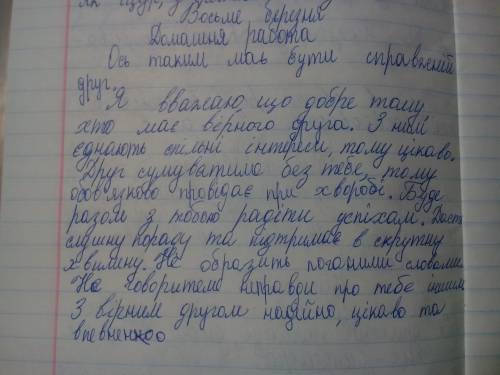 як
Восьме березня
Домашня работа
Ось таким має бути справжній
друг.
Я вважаю, що добре тому
хто має вірного друга. З ним
єднають спільні інтереси, тому цікаво.
Друг сумуватиме без тебе, тому
обов'язково провідає при хворобі. Буде
разом з тобою радіти успіхам. Дасть
слушну пораду та підтримає в скрутну
хвилину. Не образить поганими словами
Не говоритеме неправди про тебе іншим
З вірним другом надійно, цікаво та
впевнено